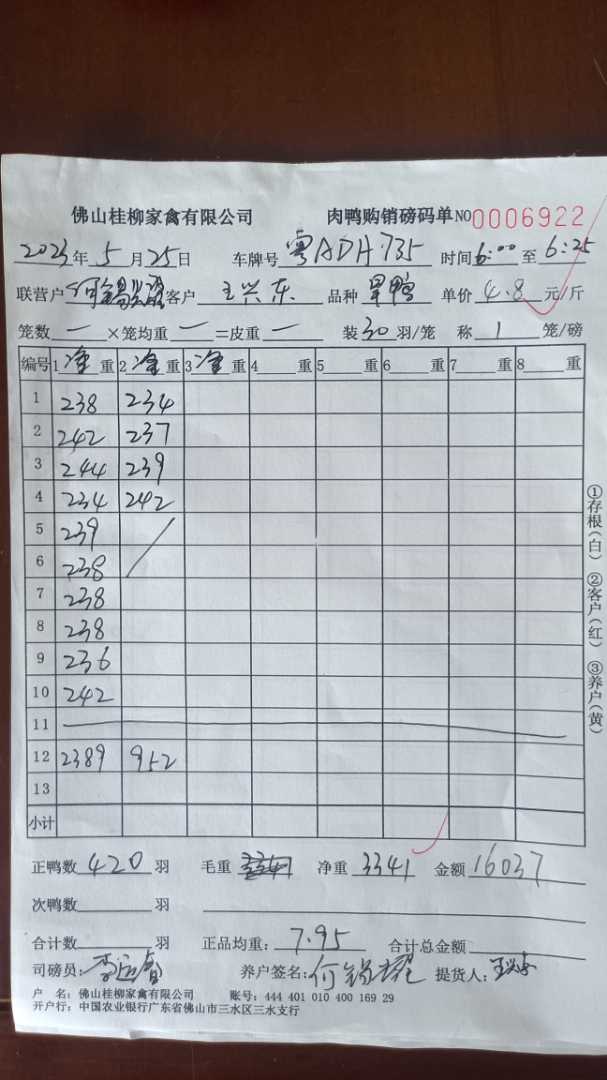 佛山桂柳家禽有限公司 肉鸭购销磅码单 NO0006922
2023年5月25日 车牌号 粤ADH735 时间 6:00 至 6:25
联营户 何锡耀 客户 王兴东 品种 旱鸭 单价 4.8 元/斤
笼数 一 ×笼均重 一 =皮重 一 装30羽/笼 称1笼/磅
编号 1净重 2净重 3净重 4重 5重 6重 7重 8重
1 238 234
2 242 237
3 244 239
4 234 242
5 239
6 238
7 238
8 238
9 236
10 242
11
12 2389 952
13
小计
正鸭数 420 羽 毛重 净重 3341 金额 16037
次鸭数 羽
合计数 羽 正品均重: 7.95 合计总金额
司磅员: 养户签名: 何锡耀 提货人: 王兴东
户 名: 佛山桂柳家禽有限公司 账号: 444 401 010 400 169 29
开户行: 中国农业银行广东省佛山市三水区三水支行
①存根(白) ②客户(红) ③养户(黄)